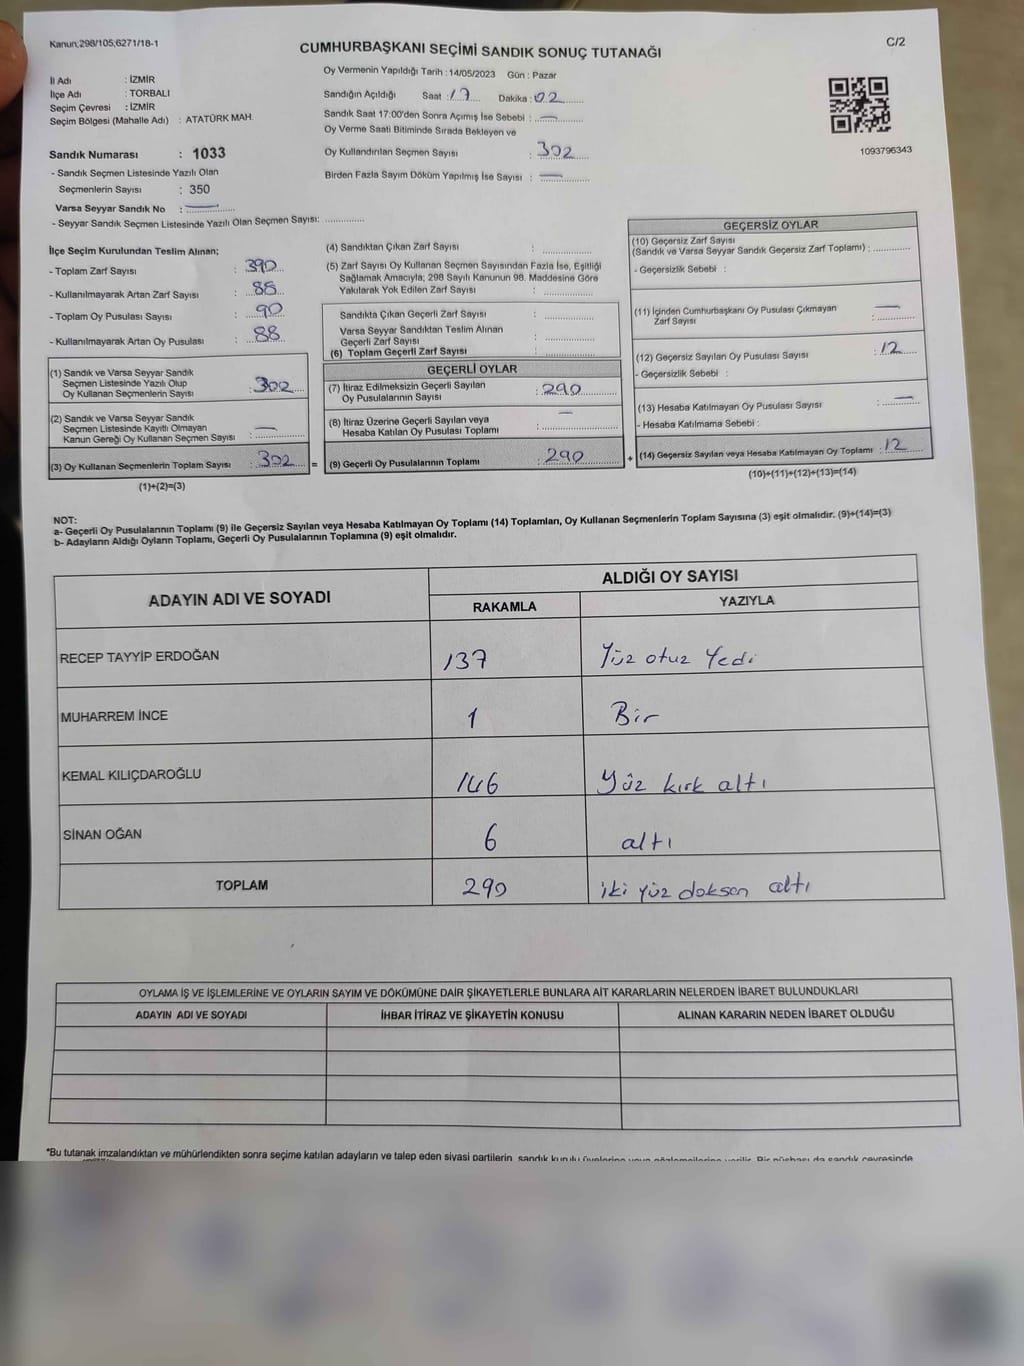 Kanun,298/105,6271/18-1
C/2
CUMHURBAŞKANI SEÇİMİ SANDIK SONUÇ TUTANAĞI
İl Adı : İZMİR
İlçe Adı : TORBALI
Seçim Çevresi : İZMİR
Seçim Bölgesi (Mahalle Adı) : ATATÜRK MAH.
Sandık Numarası : 1033
- Sandık Seçmen Listesinde Yazılı Olan
Seçmenlerin Sayısı : 350
Varsa Seyyar Sandık No :
- Seyyar Sandık Seçmen Listesinde Yazılı Olan Seçmen Sayısı: ............
Oy Vermenin Yapıldığı Tarih : 14/05/2023 Gün : Pazar
Sandığın Açıldığı Saat : 17 Dakika : 02
Sandık Saat 17:00'den Sonra Açımış İse Sebebi : —
Oy Verme Saati Bitiminde Sırada Bekleyen ve
Oy Kullandırılan Seçmen Sayısı : 302
Birden Fazla Sayım Döküm Yapılmış İse Sayısı : —
1093796343
İlçe Seçim Kurulundan Teslim Alınan;
- Toplam Zarf Sayısı : 390
- Kullanılmayarak Artan Zarf Sayısı : 88
- Toplam Oy Pusulası Sayısı : 90
- Kullanılmayarak Artan Oy Pusulası : 88
(1) Sandık ve Varsa Seyyar Sandık
Seçmen Listesinde Yazılı Olup
Oy Kullanan Seçmenlerin Sayısı : 302
(2) Sandık ve Varsa Seyyar Sandık
Seçmen Listesinde Kayıtlı Olmayan
Kanun Gereği Oy Kullanan Seçmen Sayısı : —
(3) Oy Kullanan Seçmenlerin Toplam Sayısı : 302
(1)+(2)=(3)
(4) Sandıktan Çıkan Zarf Sayısı :
(5) Zarf Sayısı Oy Kullanan Seçmen Sayısından Fazla İse, Eşitliği
Sağlamak Amacıyla; 298 Sayılı Kanunun 98. Maddesine Göre
Yakılarak Yok Edilen Zarf Sayısı :
Sandıkta Çıkan Geçerli Zarf Sayısı :
Varsa Seyyar Sandıktan Teslim Alınan
Geçerli Zarf Sayısı :
(6) Toplam Geçerli Zarf Sayısı :
GEÇERLİ OYLAR
(7) İtiraz Edilmeksizin Geçerli Sayılan
Oy Pusulalarının Sayısı : 290
(8) İtiraz Üzerine Geçerli Sayılan veya
Hesaba Katılan Oy Pusulası Toplamı : —
= (9) Geçerli Oy Pusulalarının Toplamı : 290
GEÇERSİZ OYLAR
(10) Geçersiz Zarf Sayısı
(Sandık ve Varsa Seyyar Sandık Geçersiz Zarf Toplamı) :
- Geçersizlik Sebebi :
(11) İçinden Cumhurbaşkanı Oy Pusulası Çıkmayan
Zarf Sayısı : —
(12) Geçersiz Sayılan Oy Pusulası Sayısı : 12
- Geçersizlik Sebebi :
(13) Hesaba Katılmayan Oy Pusulası Sayısı : —
- Hesaba Katılmama Sebebi :
+ (14) Geçersiz Sayılan veya Hesaba Katılmayan Oy Toplamı : 12
(10)+(11)+(12)+(13)=(14)
NOT:
a- Geçerli Oy Pusulalarının Toplamı (9) ile Geçersiz Sayılan veya Hesaba Katılmayan Oy Toplamı (14) Toplamları, Oy Kullanan Seçmenlerin Toplam Sayısına (3) eşit olmalıdır. (9)+(14)=(3)
b- Adayların Aldığı Oyların Toplamı, Geçerli Oy Pusulalarının Toplamına (9) eşit olmalıdır.
ADAYIN ADI VE SOYADI
ALDIĞI OY SAYISI
RAKAMLA YAZIYLA
RECEP TAYYİP ERDOĞAN 137 Yüz otuz Yedi
MUHARREM İNCE 1 Bir
KEMAL KILIÇDAROĞLU 146 Yüz kırk altı
SİNAN OĞAN 6 altı
TOPLAM 290 iki yüz doksan altı
OYLAMA İŞ VE İŞLEMLERİNE VE OYLARIN SAYIM VE DÖKÜMÜNE DAİR ŞİKAYETLERLE BUNLARA AİT KARARLARIN NELERDEN İBARET BULUNDUKLARI
ADAYIN ADI VE SOYADI İHBAR İTİRAZ VE ŞİKAYETİN KONUSU ALINAN KARARIN NEDEN İBARET OLDUĞU
*Bu tutanak imzalandıktan ve mühürlendikten sonra seçime katılan adayların ve talep eden siyasi partilerin, sandık kurulu üyelerine